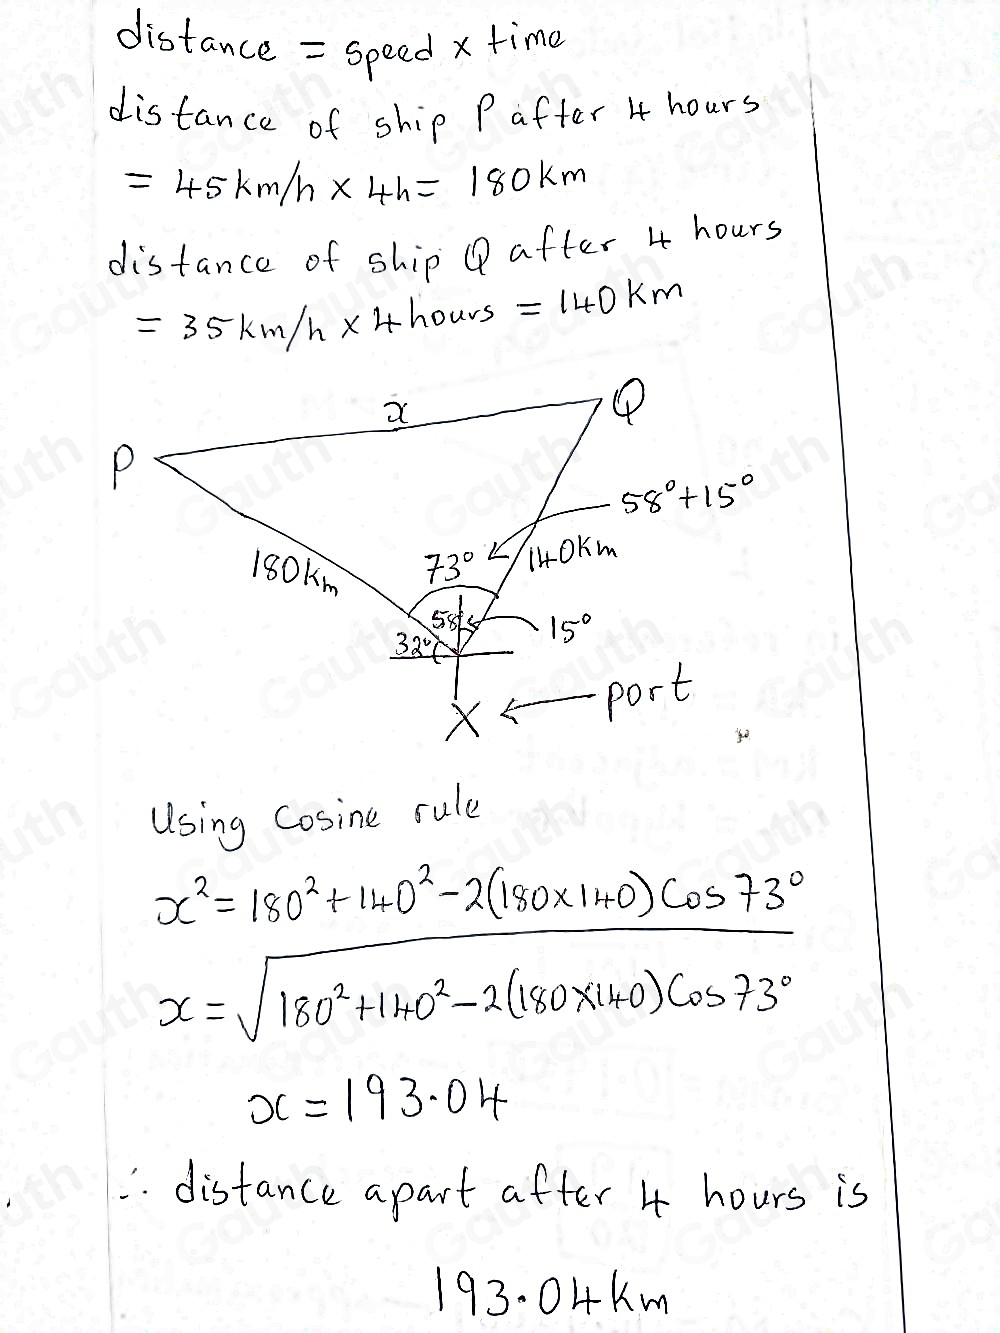 distance = speed x time
distance of ship P after 4 hours
= 45km/h x 4h = 180km
distance of ship Q after 4 hours
= 35km/h x 4hours = 140km
x
Q
P
58°+15°
180km
73°
140km
58°
15°
32°
X ← port
Using Cosine rule
x² = 180² + 140² - 2(180x140) Cos 73°
x = √180² + 140² - 2(180x140) Cos 73°
x = 193.04
∴ distance apart after 4 hours is
193.04km
Gauth